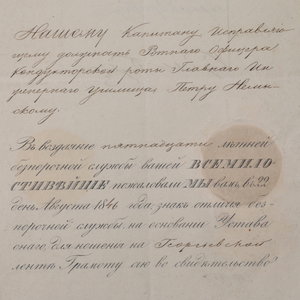 Нашему Капитану Исправляю-
щему должность Ротнаго Офицера
Кондукторской роты Главнаго Ин-
женернаго Училища Петру
скому.
Въ воздаяніе пятнадцати лѣтней
безпорочной службы вашей ВСЕМИЛО-
СТИВѢЙШЕ пожаловали МЫ вамъ въ 22
день Августа 1846 года знакъ отличія без-
порочной службы на основаніи Устава
онаго, для ношенія на Георгіевской
лентѣ. Грамоту сію во свидѣтельство